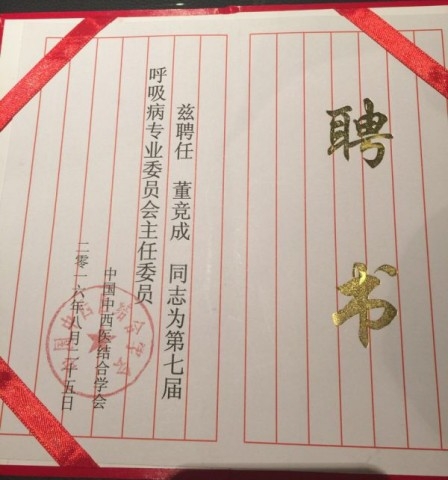 聘书
兹聘任 董竞成 同志为第七届
呼吸病专业委员会主任委员
中国中西医结合学会
二零一六年八月二十五日